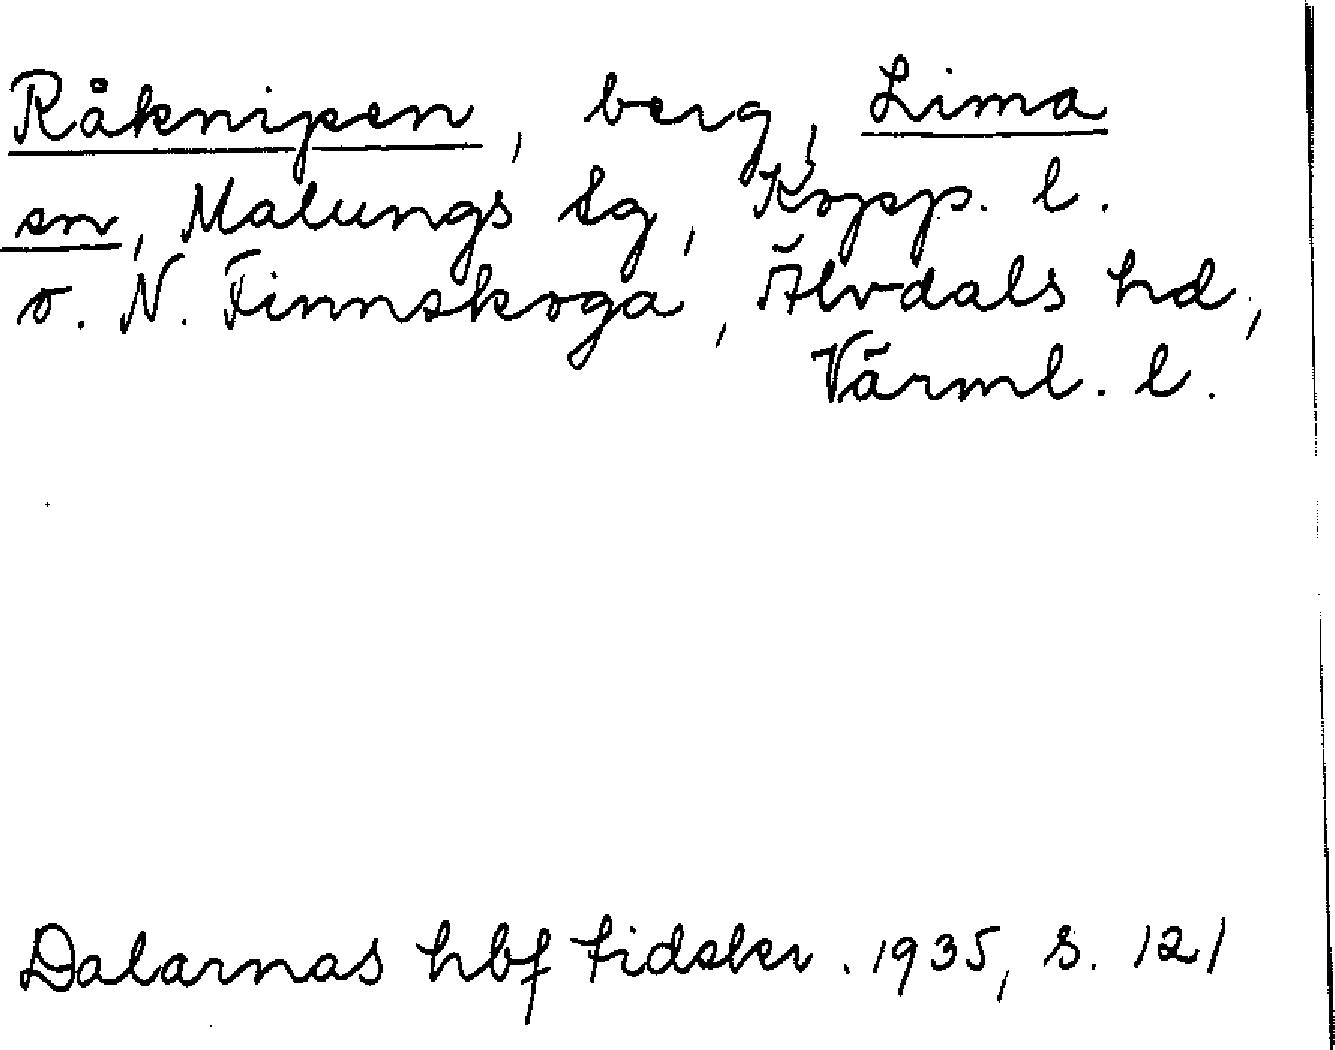 Råknipen, berg, Lima
sn, Malungs tg, Kopp. l.
o. N. Finnskoga, Älvdals hd,
Värml. l.
Dalarnas hbf tidskr. 1935, s. 121